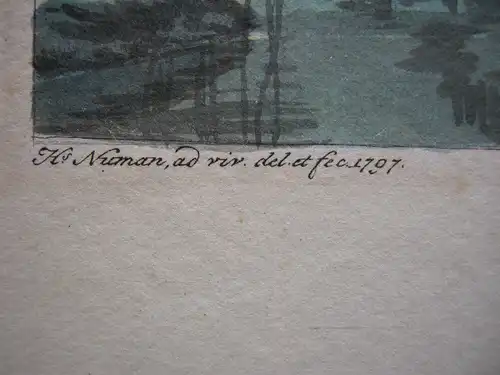 Hs Numan, ad viv. del. et fec. 1797.